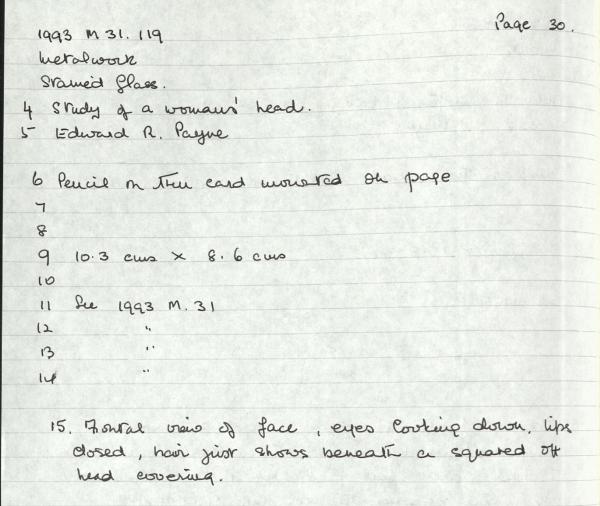 Page 30.
1993 M 31. 119
Metalwork
Stained Glass.
4 Study of a woman's head.
5 Edward R. Payne
6 Pencil on thin card mounted on page
7
8
9 10.3 cms × 8.6 cms
10
11 See 1993 M. 31
12 "
13 "
14 "
15. Frontal view of face, eyes looking down, lips
closed, hair just shows beneath a squared off
head covering.